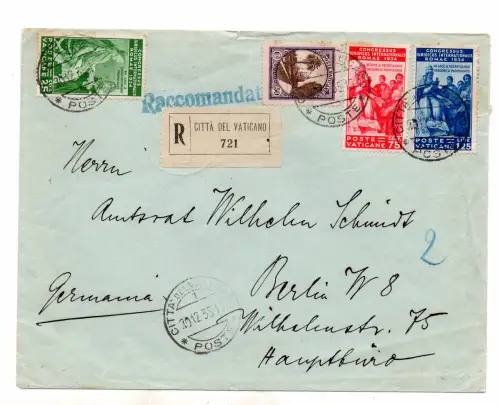 CONGRESSUS
IURIDICUS INTERNATIONALIS
ROMAE 1934
CONGRESSUS
IURIDICUS INTERNATIONALIS
ROMAE 1934
POSTE
VATICANE 25
POSTE
VATICANE 75
POSTE
VATICANE 1,25
POSTE
POSTE
POSTE
Raccomandat
R
CITTÀ DEL VATICANO
721
Herrn
Amtsrat Wilhelm Schmidt
2
Berlin W 8
Germania
Wilhelmstr. 75
Hauptbüro
CITTA DEL
20.12.35
POSTE